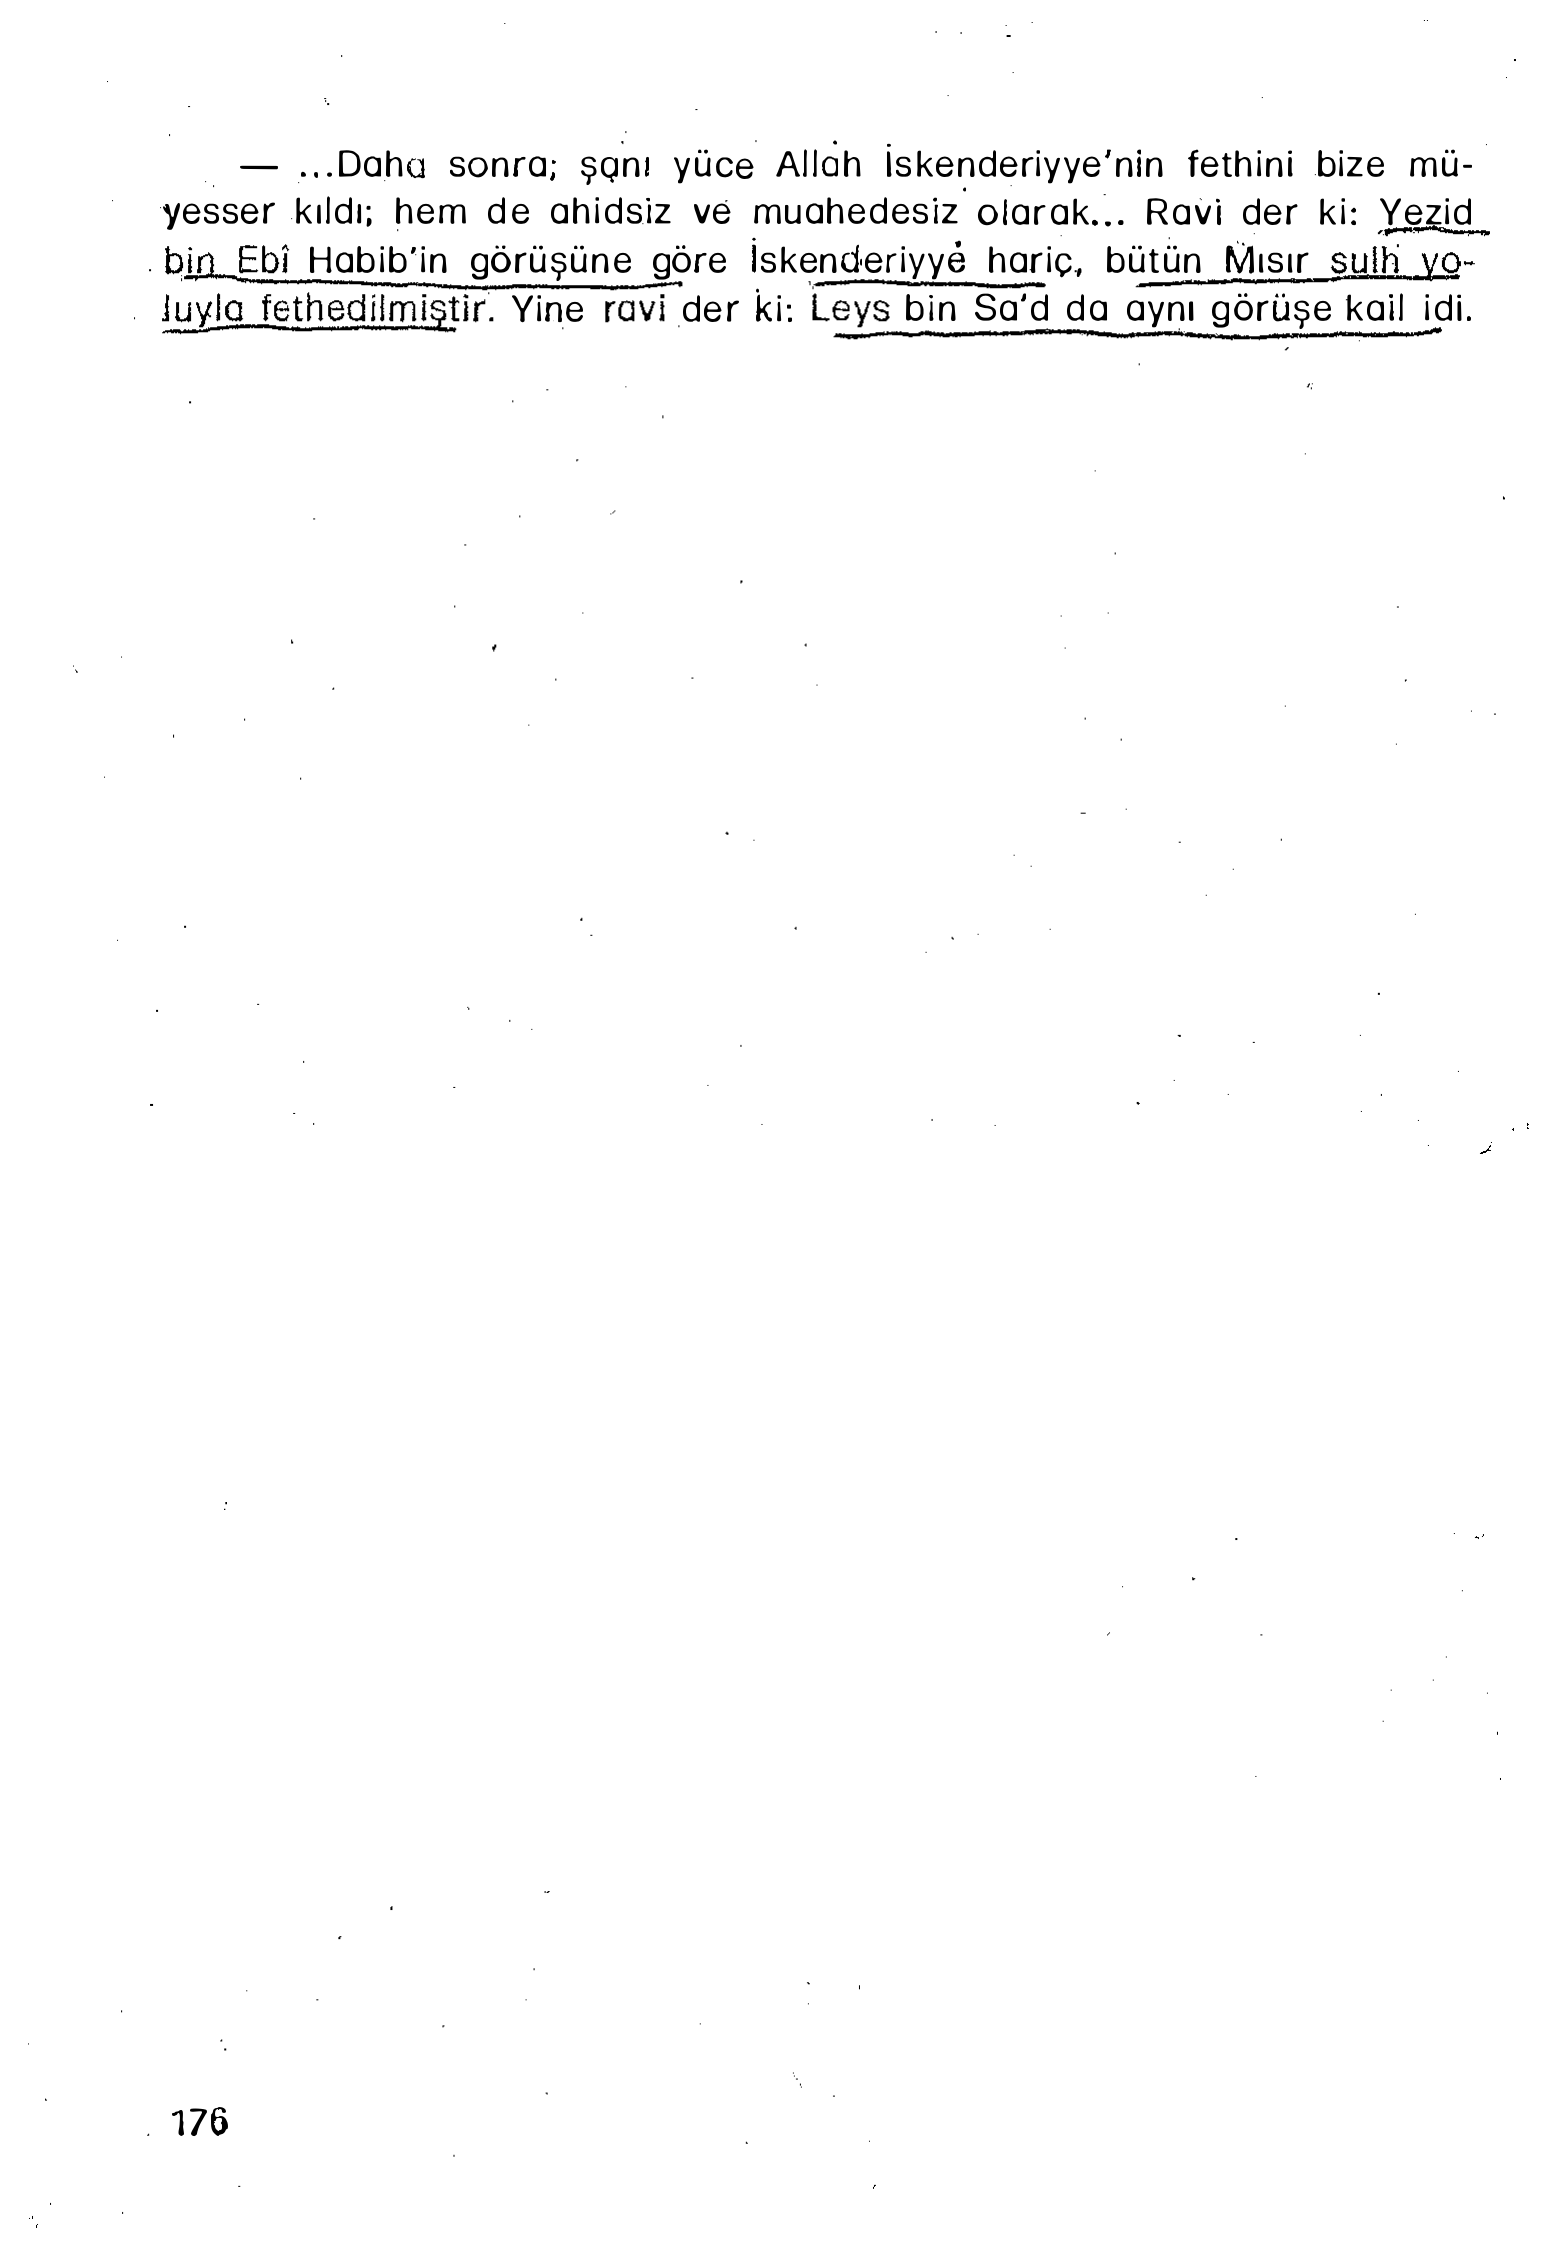 — ...Daha sonra; şanı yüce Allah İskenderiyye'nin fethini bize mü-
yesser kıldı; hem de ahidsiz ve muahedesiz olarak... Ravi der ki: Yezid
bin Ebî Habib'in görüşüne göre İskenderiyye hariç, bütün Mısır sulh yo-
luyla fethedilmiştir. Yine ravi der ki: Leys bin Sa'd da aynı görüşe kail idi.
176